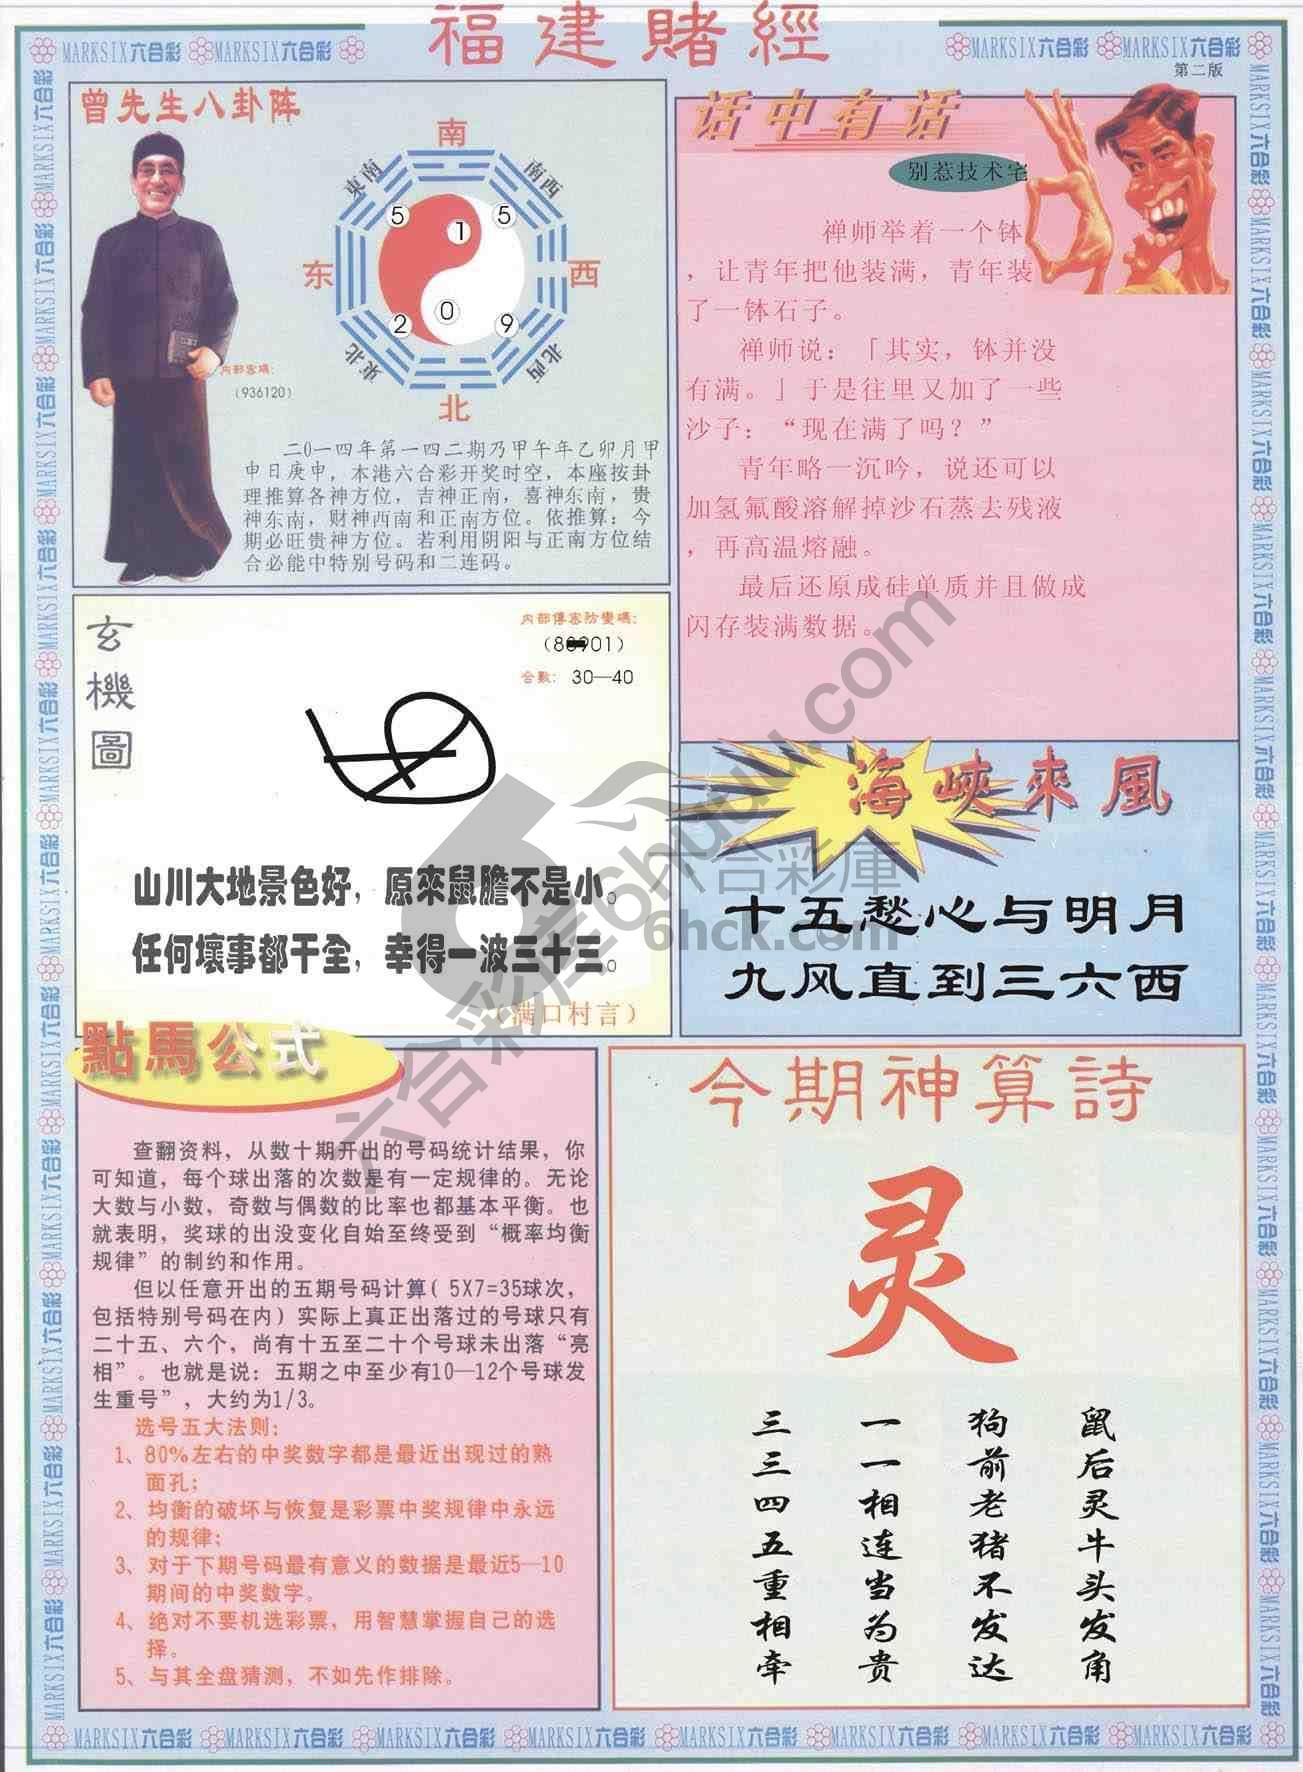 福建賭經
MARKSIX六合彩 MARKSIX六合彩
MARKSIX六合彩 MARKSIX六合彩
第二版
曾先生八卦阵
南
東南
南西
5 1 5
东
西
2 0 9
東北
北西
北
内部密碼:
(936120)
二0一四年第一四二期乃甲午年乙卯月甲
申日庚申，本港六合彩开奖时空，本座按卦
理推算各神方位，吉神正南，喜神东南，贵
神东南，财神西南和正南方位。依推算：今
期必旺贵神方位。若利用阴阳与正南方位结
合必能中特别号码和二连码。
话中有话
别惹技术宅
禅师举着一个钵
，让青年把他装满，青年装
了一钵石子。
禅师说：「其实，钵并没
有满。」于是往里又加了一些
沙子：“现在满了吗？”
青年略一沉吟，说还可以
加氢氟酸溶解掉沙石蒸去残液
，再高温熔融。
最后还原成硅单质并且做成
闪存装满数据。
玄機圖
内部傳密防變碼:
01)
合數: 30—40
山川大地景色好，原來鼠膽不是小。
任何壞事都干全，幸得一波三十三。
（满口村言）
海峽來風
十五愁心与明月
九风直到三六西
六合彩庫
6hck.com
六合彩库6huuu.com
點馬公式
查翻资料，从数十期开出的号码统计结果，你
可知道，每个球出落的次数是有一定规律的。无论
大数与小数，奇数与偶数的比率也都基本平衡。也
就表明，奖球的出没变化自始至终受到“概率均衡
规律”的制约和作用。
但以任意开出的五期号码计算( 5X7=35球次，
包括特别号码在内）实际上真正出落过的号球只有
二十五、六个，尚有十五至二十个号球未出落“亮
相”。也就是说：五期之中至少有10—12个号球发
生重号”，大约为1/3。
选号五大法则：
1、80%左右的中奖数字都是最近出现过的熟
面孔；
2、均衡的破坏与恢复是彩票中奖规律中永远
的规律；
3、对于下期号码最有意义的数据是最近5—10
期间的中奖数字。
4、绝对不要机选彩票，用智慧掌握自己的选
择。
5、与其全盘猜测，不如先作排除。
今期神算詩
灵
鼠后灵牛头发角
狗前老猪不发达
一一相连当为贵
三三四五重相牵
MARKSIX六合彩 MARKSIX六合彩 MARKSIX六合彩 MARKSIX六合彩 MARKSIX六合彩 MARKSIX六合彩 MARKSIX六合彩 MARKSIX六合彩